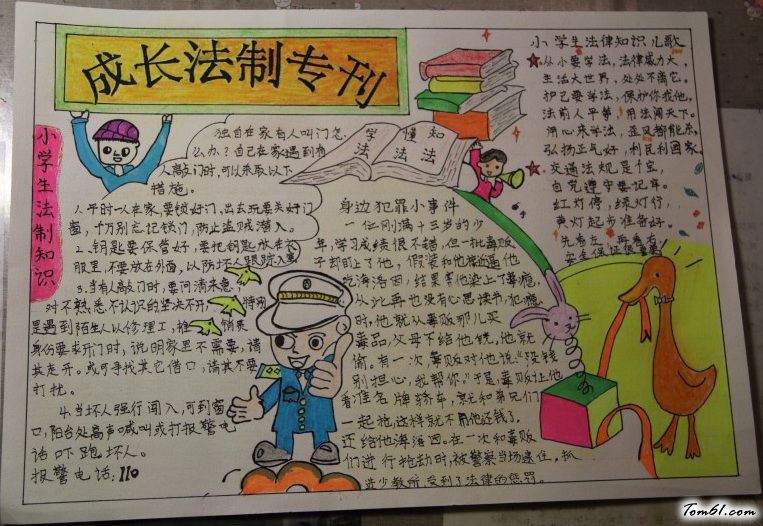 成长法制专刊
小学生法制知识
独自在家有人叫门怎
么办？自己在家遇到有
人敲门时，可以采取以下
措施。
1.平时一人在家，要锁好门，出去玩要关好门
窗，千万别忘记锁门，防止盗贼潜入。
2、钥匙要保管好，要把钥匙放在衣
服里，不要放在外面，以防坏人跟踪入室
3.当有人敲门时，要问清来意，
对不熟悉不认识的坚决不开，特别
是遇到陌生人以修理工，推销员
身份要求开门时，说明家里不需要，请
其走开。或可寻找其它借口，请其不要
打扰。
4.当坏人强行闯入，可到窗
口，阳台处高声喊叫或打报警电
话吓跑坏人。
报警电话：110
学法 懂法 知法
身边犯罪小事件
一位刚满十三岁的少
年，学习成绩很不错，但一批毒贩
子却盯上了他，假装和他接近逼他
吃海洛因，结果害他染上了毒瘾，
从此再也没有心思读书，犯瘾
时，他就从毒贩那儿买
毒品，父母不给他钱，他就
偷。有一次，毒贩对他说："没钱
别担心，我帮你。"于是，毒贩让他
看准名牌轿车，就和弟兄们
一起抢，这样就不用他还钱了，
还给他海洛因。在一次和毒贩
们进行抢劫时，被警察当场逮住，抓
进少教所，受到了法律的惩罚。
小学生法律知识儿歌
从小要学法，法律威力大，
生活大世界，处处不离它。
护己要学法，保护你我他，
法前人平等，用法闯天下。
用心来学法，歪风都能杀，
弘扬正气好，利民利国家。
交通法规是个宝，
自觉遵守要记牢。
红灯停，绿灯行，
黄灯起步准备好。
先看左，再看右，
安全保证很重要。
Tom61.com